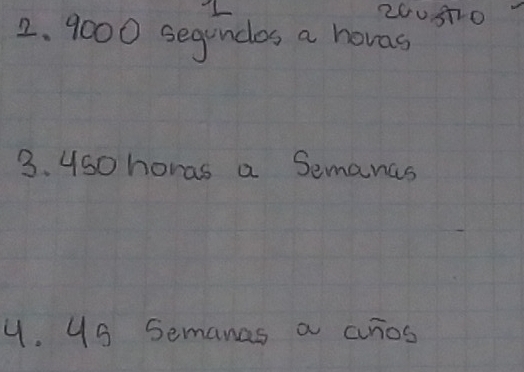 2. 9000 segundos a horas
3. 450 horas a Semanas
4. 45 Semanas a años